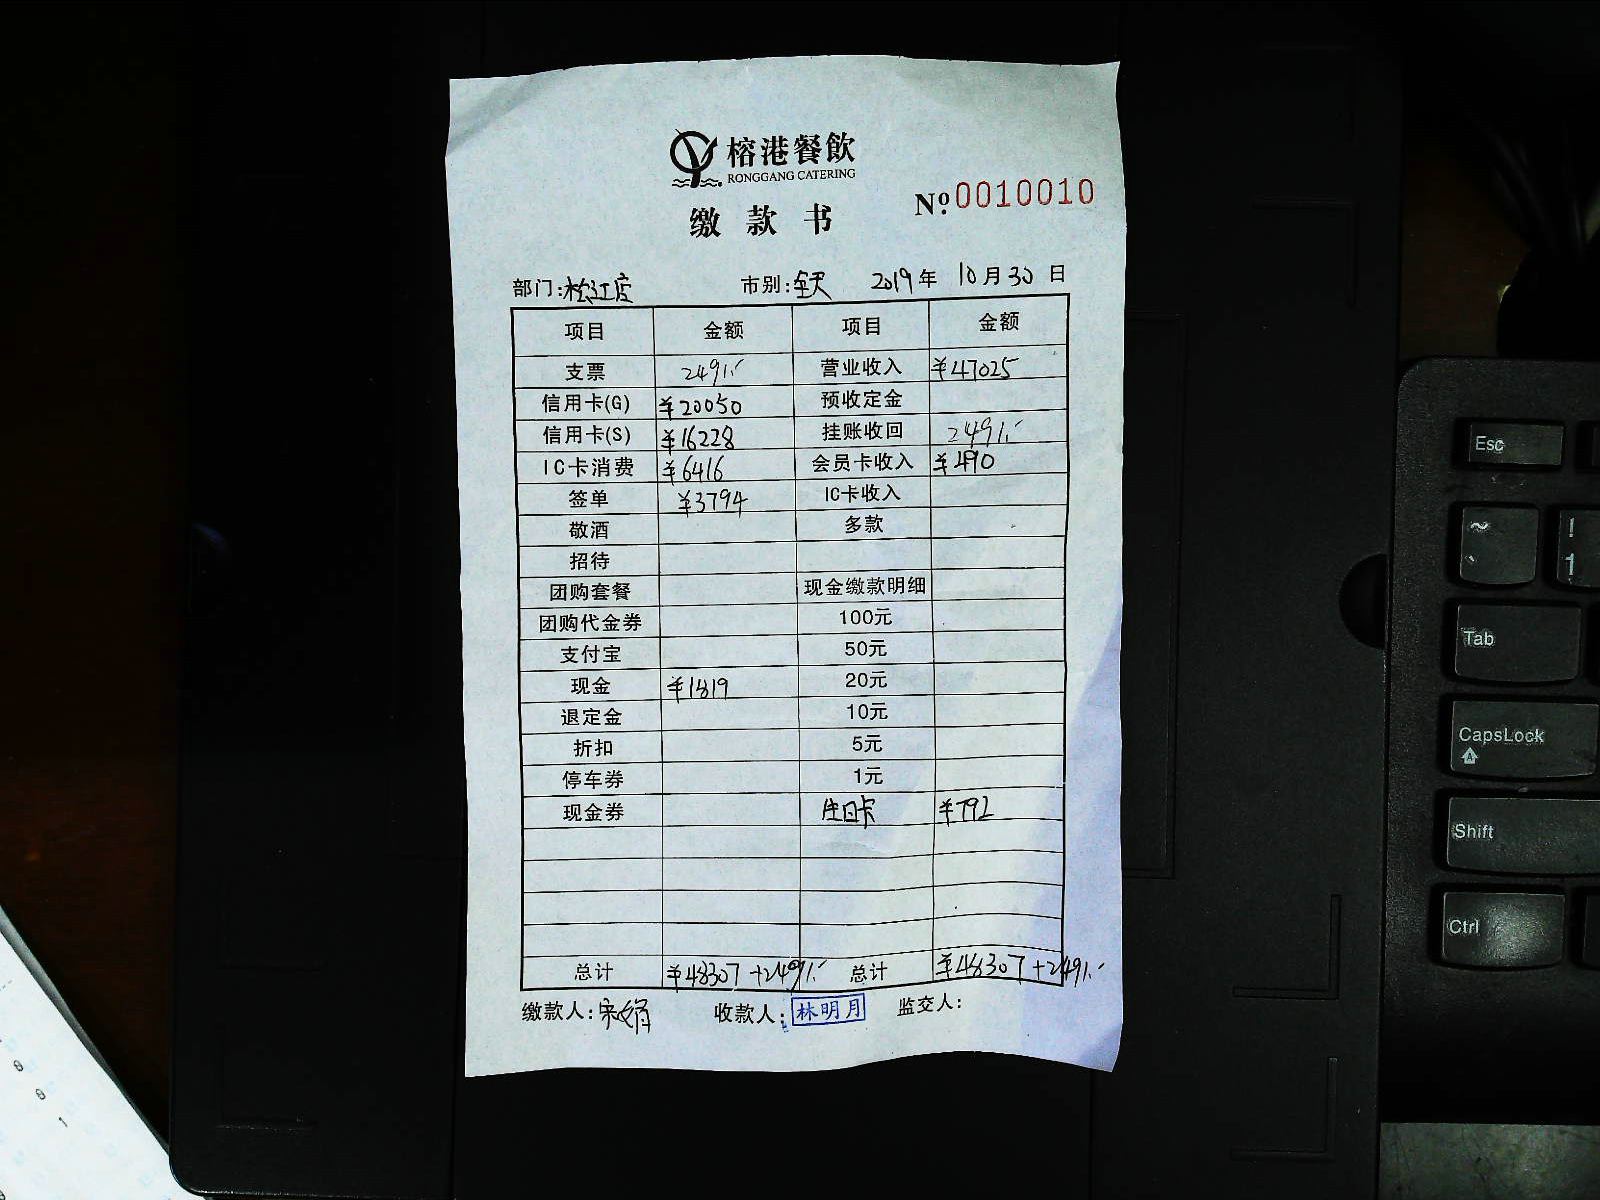 榕港餐飲
RONGGANG CATERING
缴款书
№ 0010010
部门:松江店 市别:全天 2019年10月30日
项目 金额 项目 金额
支票 2491.- 营业收入 ¥47025
信用卡(G) ¥20050 预收定金
信用卡(S) ¥16228 挂账收回 2491.-
IC卡消费 ¥6416 会员卡收入 ¥490
签单 ¥3794 IC卡收入
敬酒 多款
招待
团购套餐 现金缴款明细
团购代金券 100元
支付宝 50元
现金 ¥1819 20元
退定金 10元
折扣 5元
停车券 1元
现金券 生日卡 ¥792
总计 ¥48307+2491.- 总计 ¥48307+2491.-
缴款人: 收款人:林明月 监交人:
Esc
~ ! 
` 1
Tab
CapsLock
Shift
Ctrl